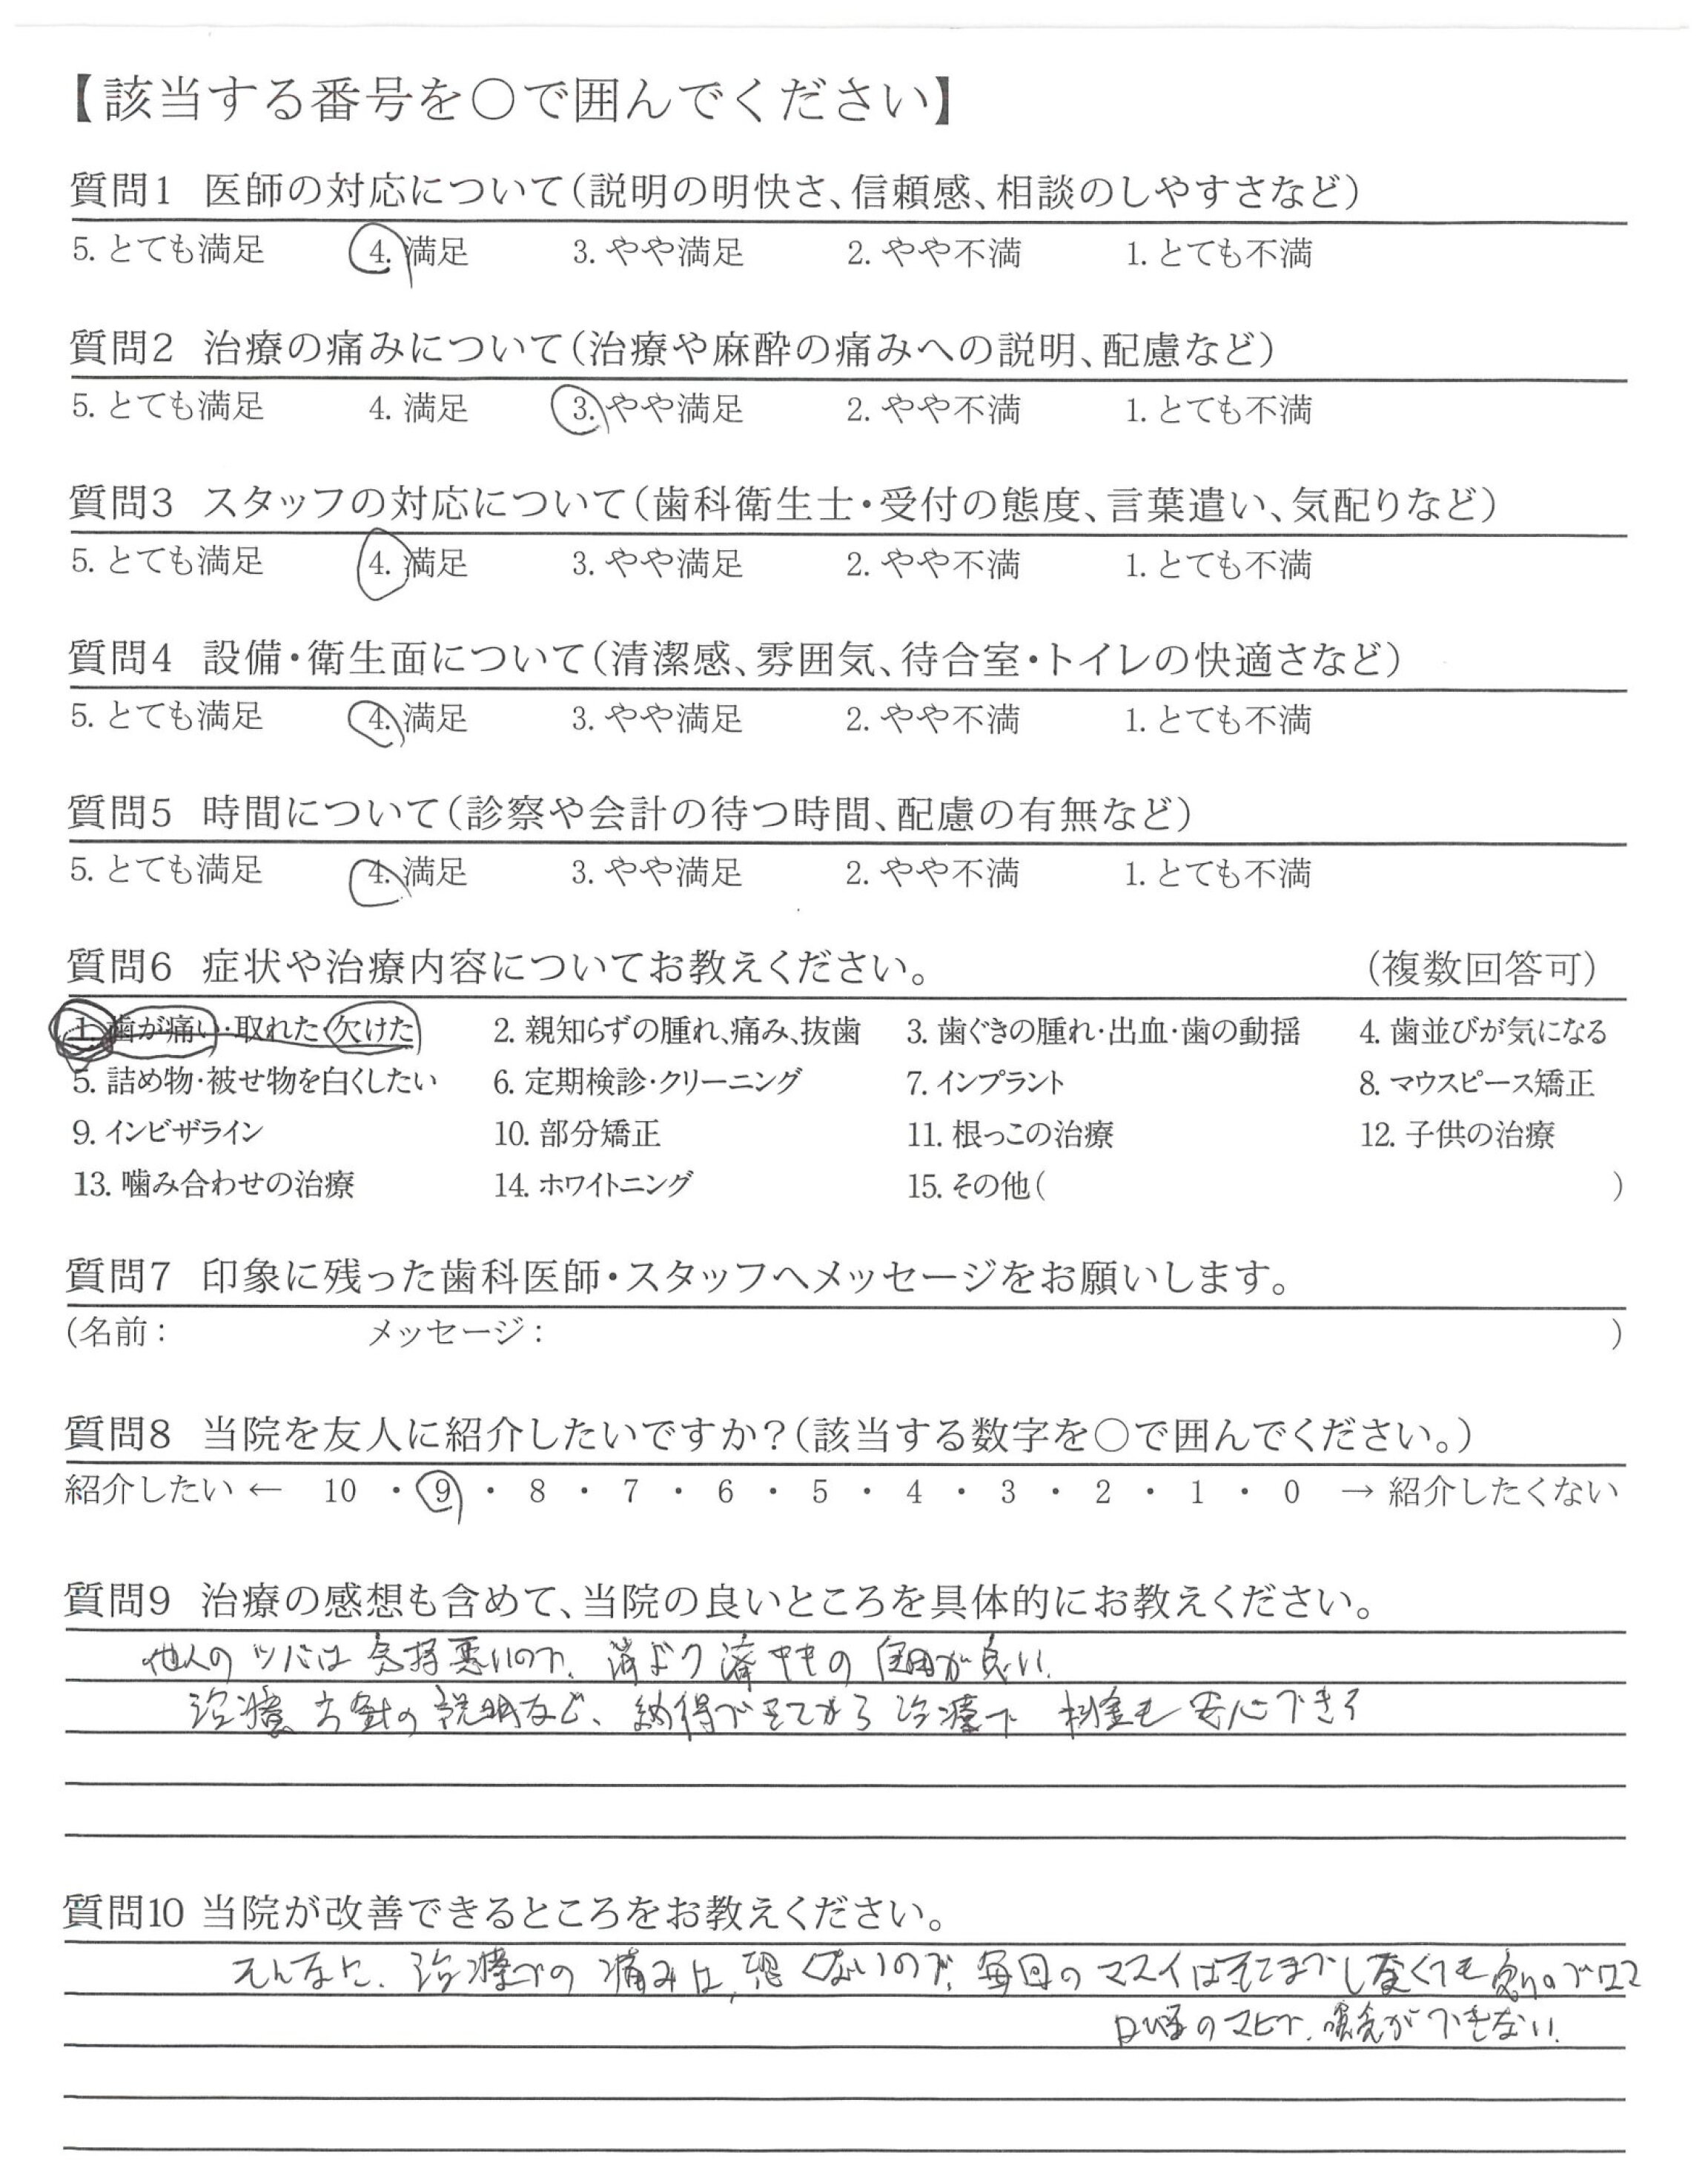 【該当する番号を〇で囲んでください】
質問1 医師の対応について(説明の明快さ、信頼感、相談のしやすさなど)
5. とても満足 4. 満足 3. やや満足 2. やや不満 1. とても不満
質問2 治療の痛みについて(治療や麻酔の痛みへの説明、配慮など)
5. とても満足 4. 満足 3. やや満足 2. やや不満 1. とても不満
質問3 スタッフの対応について(歯科衛生士・受付の態度、言葉遣い、気配りなど)
5. とても満足 4. 満足 3. やや満足 2. やや不満 1. とても不満
質問4 設備・衛生面について(清潔感、雰囲気、待合室・トイレの快適さなど)
5. とても満足 4. 満足 3. やや満足 2. やや不満 1. とても不満
質問5 時間について(診察や会計の待つ時間、配慮の有無など)
5. とても満足 4. 満足 3. やや満足 2. やや不満 1. とても不満
質問6 症状や治療内容についてお教えください。 (複数回答可)
1. 歯が痛い・取れた・欠けた 2. 親知らずの腫れ、痛み、抜歯 3. 歯ぐきの腫れ・出血・歯の動揺 4. 歯並びが気になる
5. 詰め物・被せ物を白くしたい 6. 定期検診・クリーニング 7. インプラント 8. マウスピース矯正
9. インビザライン 10. 部分矯正 11. 根っこの治療 12. 子供の治療
13. 噛み合わせの治療 14. ホワイトニング 15. その他( )
質問7 印象に残った歯科医師・スタッフへメッセージをお願いします。
(名前: メッセージ: )
質問8 当院を友人に紹介したいですか?(該当する数字を〇で囲んでください。)
紹介したい ← 10 ・ 9 ・ 8 ・ 7 ・ 6 ・ 5 ・ 4 ・ 3 ・ 2 ・ 1 ・ 0 → 紹介したくない
質問9 治療の感想も含めて、当院の良いところを具体的にお教えください。
他人のツバは気持悪いので、 の が良い.
治療方針の説明など、納得できてから治療で 料金も安心できる
質問10 当院が改善できるところをお教えください。
そんなに、治療での痛みは、 くないので、毎回のマスイはそこまでしなくても良いので
のマヒで、 ができない.